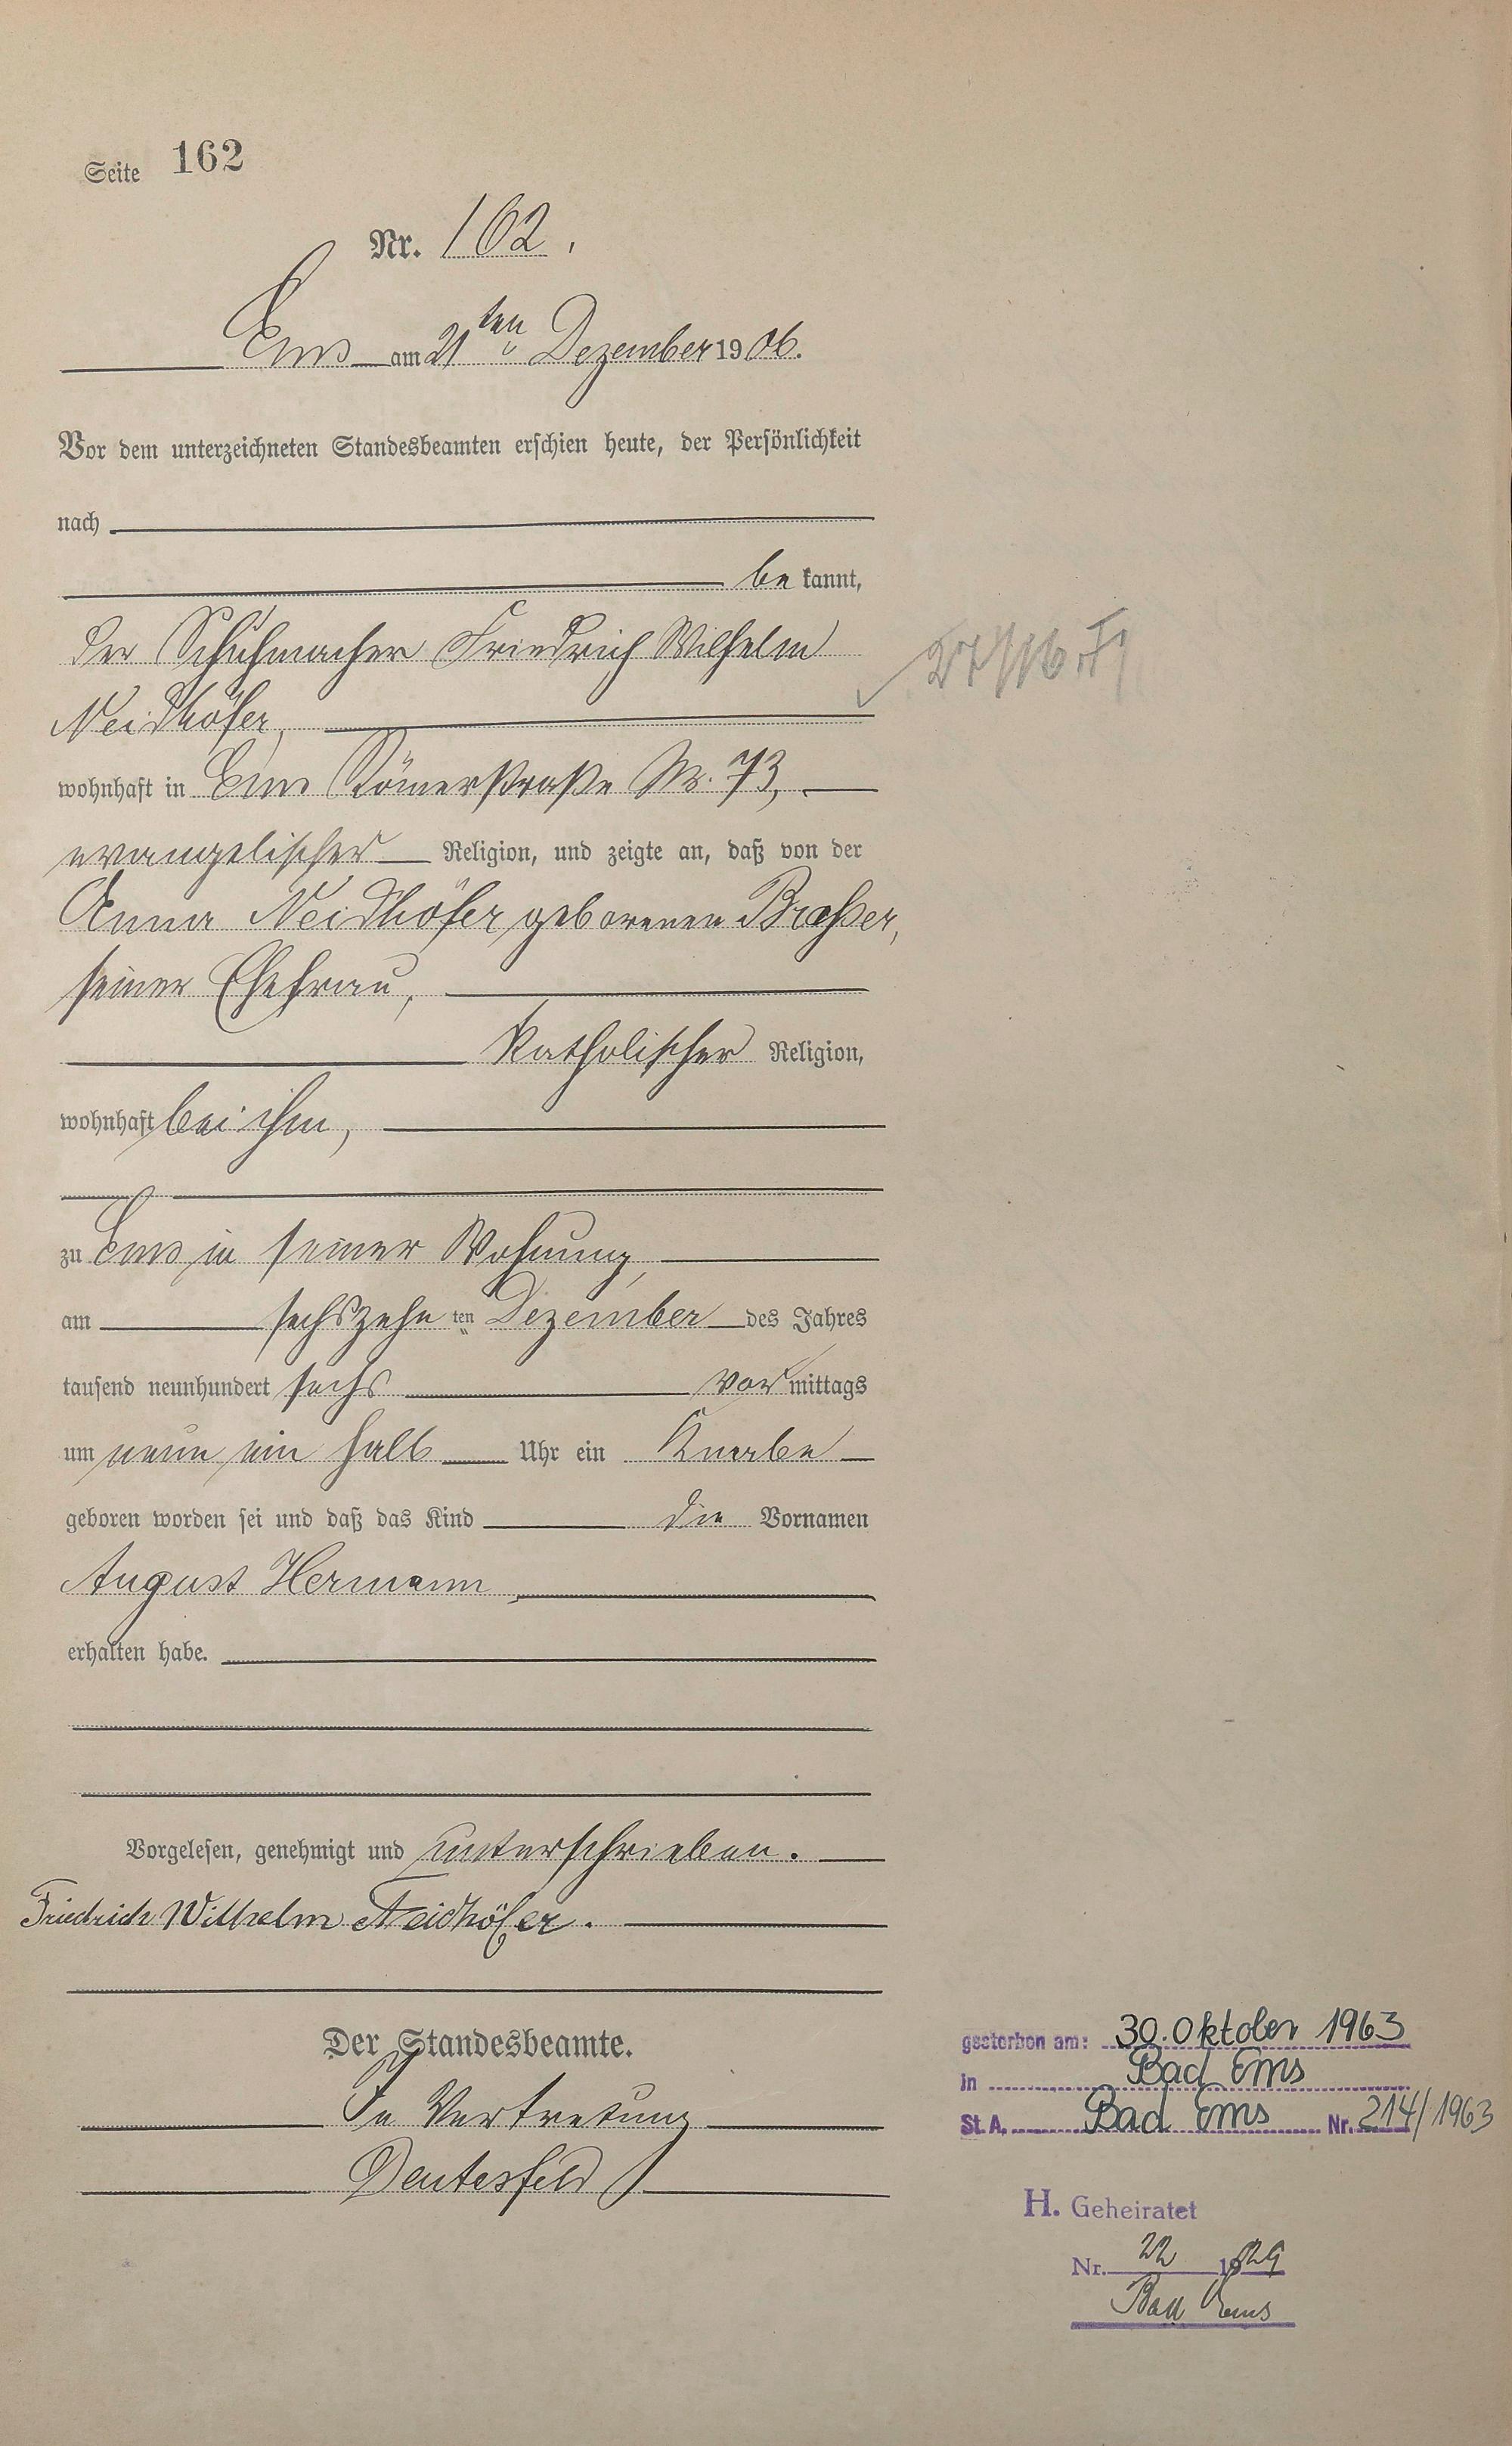 Seite 162
Nr. 162.
Ems am 21ten Dezember 1906.
Vor dem unterzeichneten Standesbeamten erschien heute, der Persönlichkeit
nach
be kannt,
der Schuhmacher Friedrich Wilhelm
Neidhöfer,
wohnhaft in Ems Römerstraße Nr. 73,
evangelischer Religion, und zeigte an, daß von der
Anna Neidhöfer geborenen Braßer,
seiner Ehefrau,
katholischer Religion,
wohnhaft bei ihm,
zu Ems in seiner Wohnung,
am sechszehn ten Dezember des Jahres
tausend neunhundert sechs vor mittags
um neun ein halb Uhr ein Knabe
geboren worden sei und daß das Kind die Vornamen
August Hermann
erhalten habe.
Vorgelesen, genehmigt und unterschrieben.
Friedrich Wilhelm Neidhöfer.
Der Standesbeamte.
In Vertretung
gestorben am: 30. Oktober 1963
in Bad Ems
St. A. Bad Ems Nr. 214/1963
H. Geheiratet
Nr. 22 1929
Bad Ems